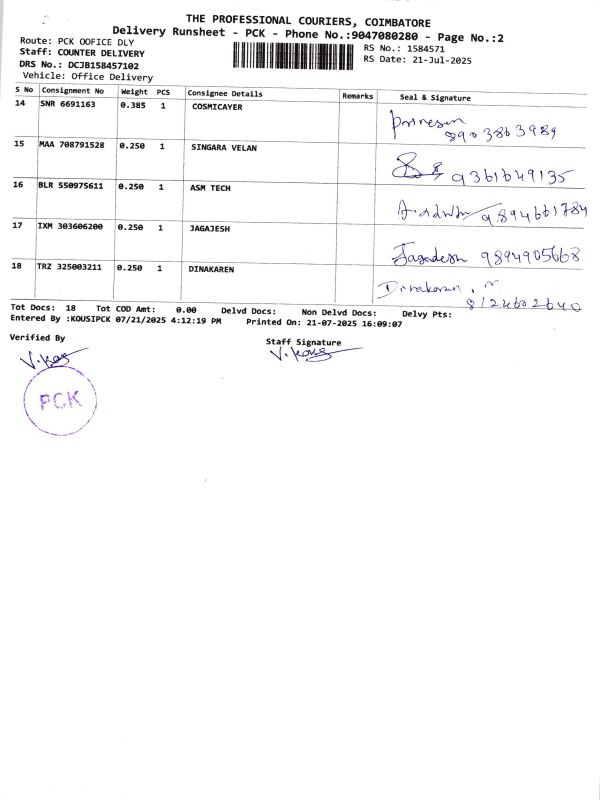 THE PROFESSIONAL COURIERS, COIMBATORE
Delivery Runsheet - PCK - Phone No.:9047080280 - Page No.:2
Route: PCK OOFICE DLY
RS No.: 1584571
Staff: COUNTER DELIVERY
RS Date: 21-Jul-2025
DRS No.: DCJB158457102
Vehicle: Office Delivery
S No Consignment No Weight PCS Consignee Details Remarks Seal & Signature
14 SNR 6691163 0.385 1 COSMICAYER
8903863989
15 MAA 708791528 0.250 1 SINGARA VELAN
9361649135
16 BLR 550975611 0.250 1 ASM TECH
9894661784
17 IXM 303606200 0.250 1 JAGAJESH
Jagadesh 9894905668
18 TRZ 325003211 0.250 1 DINAKAREN
Dinakaran. N
8124602640
Tot Docs: 18 Tot COD Amt: 0.00 Delvd Docs: Non Delvd Docs: Delvy Pts:
Entered By :KOUSIPCK 07/21/2025 4:12:19 PM Printed On: 21-07-2025 16:09:07
Verified By
Staff Signature
PCK